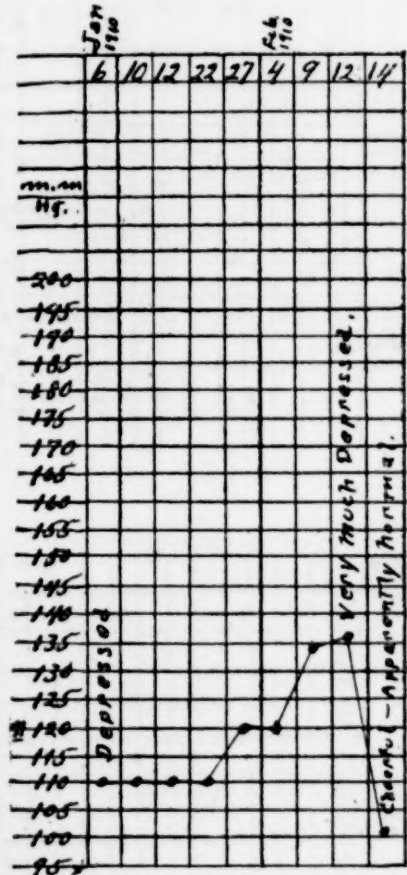 Jan 1910
Feb. 1910
6 10 12 22 27 4 9 12 14
m.m
Hg.
200
195
190
185
180
175
170
165
160
155
150
145
140
135
130
125
120
115
110
105
100
95
Depressed
Very much Depressed.
Cheerful - Apparently normal.